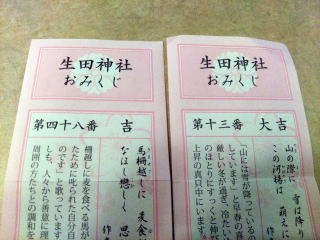 生田神社
おみくじ
第四十八番 吉
馬柵越しに 麦食
なはし戀しく 思
柵越しに麦を食べる馬が
たために叱られた自分自
のです」と歌っています
しも、人々から善意に理
周囲の方たちとの調和を
生田神社
おみくじ
第十三番 大吉
山の際に 雪は降り
この河楊は 萌えに
「山には雪が降っている
しています」と早春の喜
厳しい冬が過ぎ、冷たい
のほとりにすっくと伸び
上昇の真只中にいます。